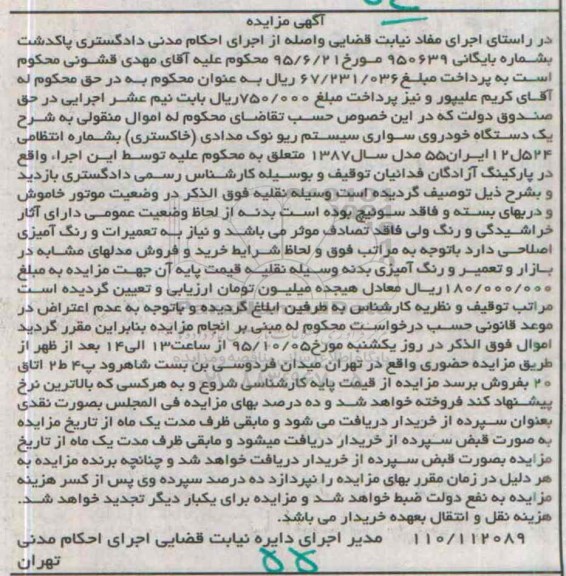 آگهی مزایده
در راستای اجرای مفاد نیابت قضایی واصله از اجرای احکام مدنی دادگستری پاکدشت
بشماره بایگانی ۹۵۰۶۳۹ مـورخ ۹۵/۶/۲۱ محکوم علیه آقای مهدی قشـونی محکوم
است به پرداخت مبلـغ ۶۷/۲۳۱/۰۳۶ ریال بـه عنوان محکوم بـه در حق محکوم له
آقـای کریم علیپور و نیز پرداخت مبلغ ۷۵۰/۰۰۰ریال بابت نیم عشـر اجرایی در حق
صندوق دولت که در این خصوص حسب تقاضـای محکوم له اموال منقولی به شـرح
یک دستگاه خودروی سـواری سیستـم ریو نوک مدادی (خاکستری) بشماره انتظامی
۵۲۴ل۱۲ایـران۵۵ مدل سـال۱۳۸۷ متعلق به محکوم علیه توسط ایـن اجرا، واقع
در پارکینگ آزادگان فدائیان توقیف و بوسیله کارشناس رسمی دادگستری بازدید
و بشرح ذیل توصیف گردیده است وسیله نقلیه فوق الذکر در وضعیت موتور خاموش
و دربهای بسته و فاقد سـوئیچ بوده اسـت بدنـه از لحاظ وضعیت عمومـی دارای آثار
خراشیدگی و رنگ ولی فاقد تصادف موثر می باشد و نیاز بـه تعمیرات و رنگ آمیزی
اصلاحـی دارد باتوجه به مراتب فوق و لحاظ شـرایط خرید و فروش مدلهای مشـابه در
بـازار و تعمیـر و رنگ آمیزی بدنه وسـیله نقلیـه قیمت پایه آن جهـت مزایده به مبلغ
۱۸۰/۰۰۰/۰۰۰ریـال معادل هیجده میلیـون تومان ارزیابی و تعیین گردیده اسـت
مراتب توقیف و نظریه کارشناس به طرفین ابلاغ گردیده و باتوجه به عدم اعتراض در
موعد قانونی حسب درخواست محکوم له مبنی بر انجام مزایده بنابراین مقرر گردید
اموال فوق الذکر در روز یکشنبه مورخ۹۵/۱۰/۰۵ از ساعت۱۳ الی۱۴ بعد از ظهر از
طریق مزایده حضوری واقع در تهران میدان فردوسـی بن بست شاهرود پ۴ ط۲ اتاق
۲۰ بفروش برسد مزایده از قیمت پایه کارشناسی شروع و به هرکسی که بالاترین نرخ
پیشـنهاد کند فروخته خواهد شـد و ده درصد بهای مزایده فی المجلس بصورت نقدی
بعنوان سـپرده از خریدار دریافت می شود و مابقی ظرف مدت یک ماه از تاریخ مزایده
به صورت قبض سـپرده از خریدار دریافت میشود و مابقی ظرف مدت یک ماه از تاریخ
مزایده بصورت قبض سـپرده از خریدار دریافت خواهد شد و چنانچه برنده مزایده به
هر دلیل در زمان مقرر بهای مزایده را نپردازد ده درصد سپرده وی پس از کسر هزینه
مزایده به نفع دولت ضبط خواهد شـد و مزایده برای یکبار دیگر تجدید خواهد شـد.
هزینه نقل و انتقال بعهده خریدار می باشد.
۱۱۰/۱۱۲۰۸۹ مدیر اجرای دایره نیابت قضایی اجرای احکام مدنی
تهران